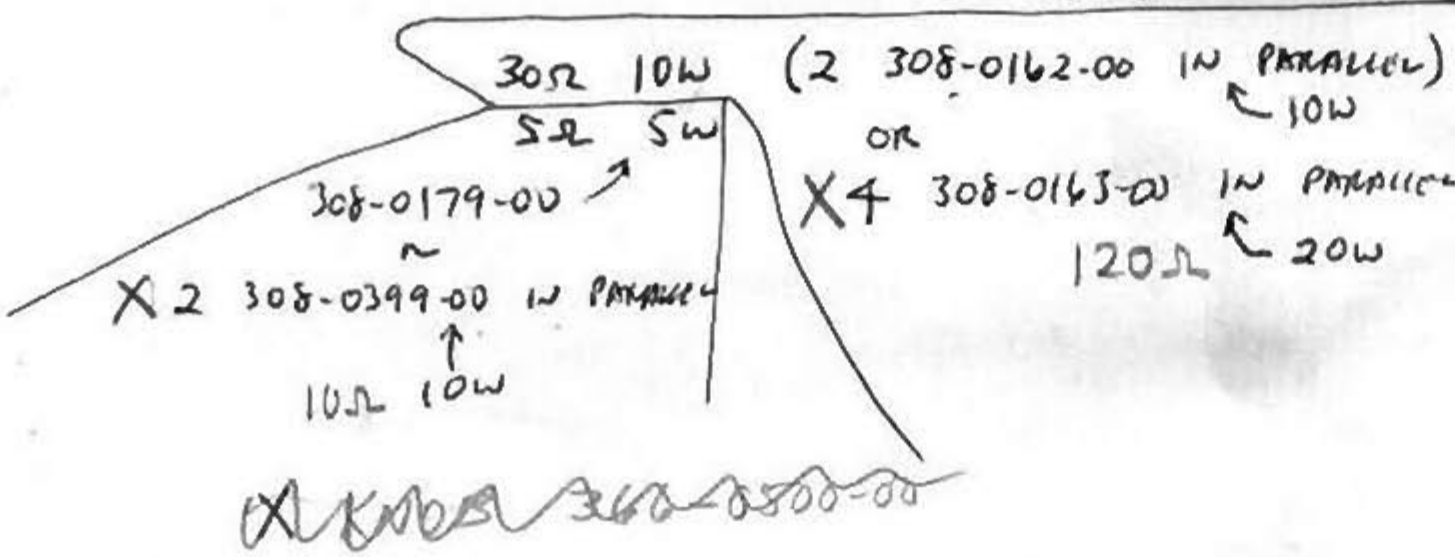 30Ω 10W (2 308-0162-00 IN PARALLEL)
10W
5Ω 5W
OR
308-0179-00
X4 308-0163-00 IN PARALLEL
120Ω 20W
~
X 2 308-0399-00 IN PARALLEL
10Ω 10W
X KNOB 366-0500-00